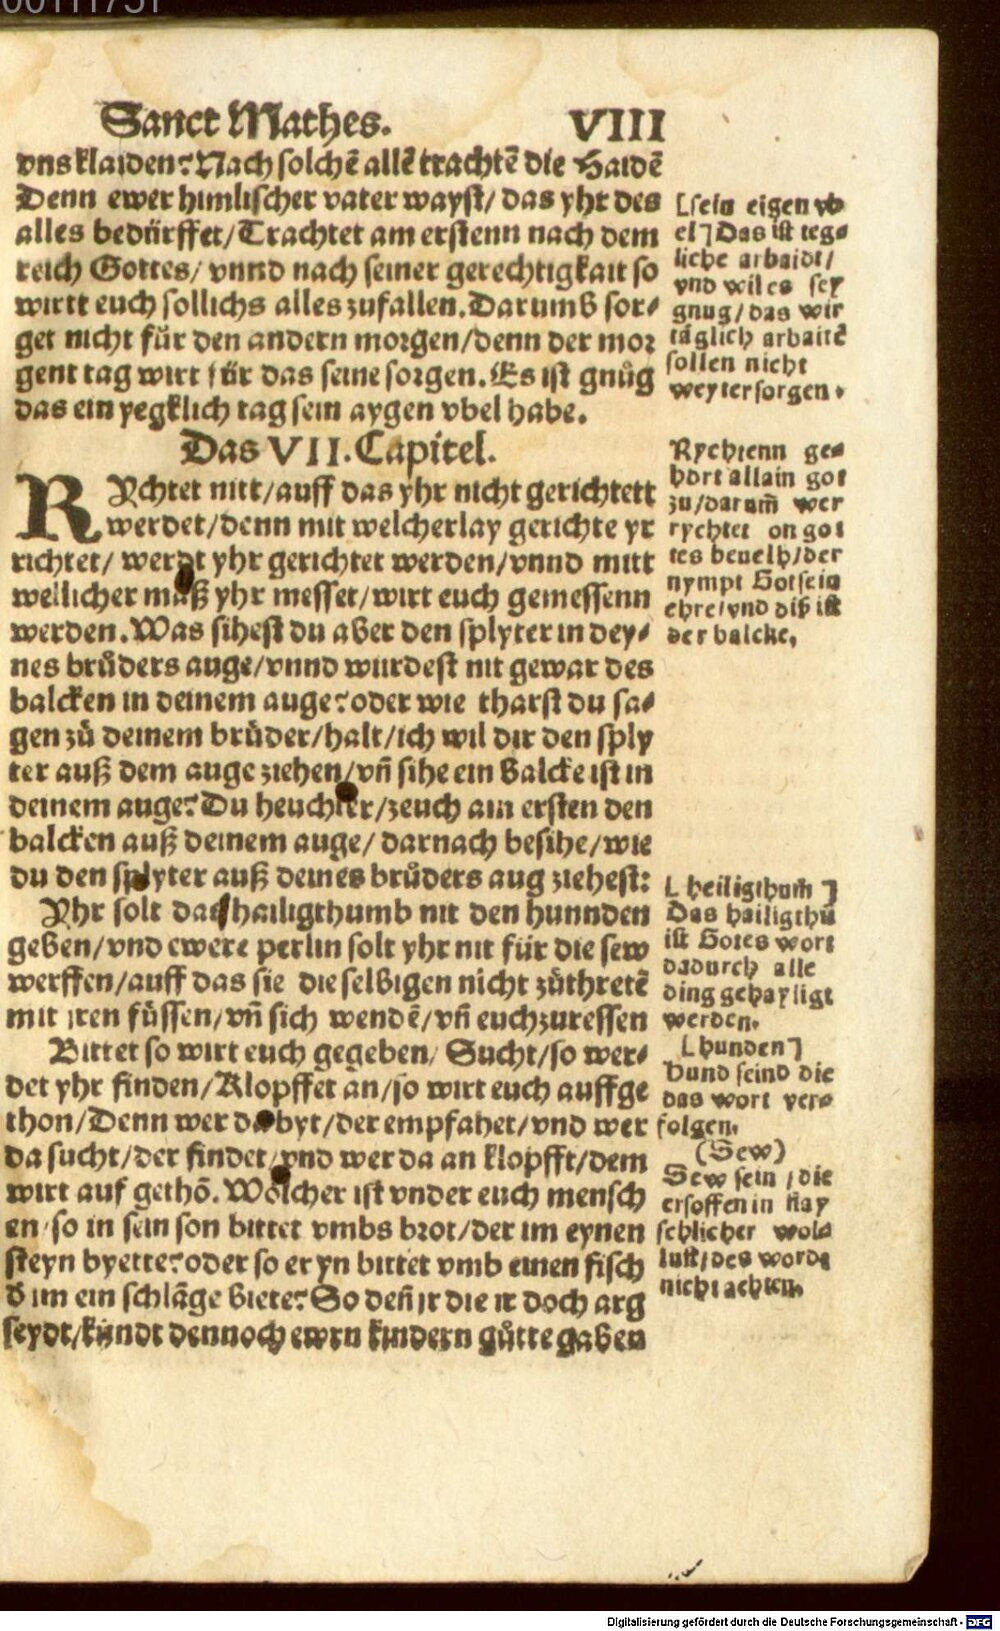 00111751
Sanct Mathes. VIII
vns klaiden? Nach solchē allē trachtē die Haidē
Denn ewer himlischer vater wayst/ das yhr des
alles bedürffet/ Trachtet am erstenn nach dem
reich Gottes/ vnnd nach seiner gerechtigkait so
wirtt euch sollichs alles zufallen. Darumb sor⸗
get nicht für den andern morgen/ denn der mor
gent tag wirt für das seine sorgen. Es ist gnůg
das ein yegklich tag sein aygen vbel habe.
Das VII. Capitel.
RYchtet nitt/ auff das yhr nicht gerichtett
werdet/ denn mit welcherlay gerichte yr
richtet/ werdt yhr gerichtet werden/ vnnd mitt
wellicher maß yhr messet/ wirt euch gemessenn
werden. Was sihest du aber den splyter in dey⸗
nes brůders auge/ vnnd wurdest nit gewar des
balcken in deinem auge? oder wie tharst du sa⸗
gen zů deinem brůder/ halt/ ich wil dir den sply
ter auß dem auge ziehen/ vñ sihe ein balcke ist in
deinem auge? Du heuchler/ zeuch am ersten den
balcken auß deinem auge/ darnach besihe/ wie
du den splyter auß deines brůders aug ziehest:
Yhr solt das hailigthumb nit den hunnden
geben/ vnd ewere perlin solt yhr nit für die sew
werffen/ auff das sie die selbigen nicht zůthretē
mit iren fůssen/ vñ sich wendē/ vñ euch zuressen
Bittet so wirt euch gegeben/ Sucht/ so wer⸗
det yhr finden/ Klopffet an/ so wirt euch auffge
thon/ Denn wer da byt/ der empfahet/ vnd wer
da sucht/ der findet/ vnd wer da an klopfft/ dem
wirt auf gethō. Wölcher ist vnder euch mensch
en/ so in sein son bittet vmbs brot/ der im eynen
steyn byette? oder so er yn bittet vmb einen fisch
d̄ im ein schlāge biete? So deñ ir die ir doch arg
seydt/ kündt dennoch ewrn kindern gůtte gaben
[sein eigen vb
el] Das ist teg⸗
liche arbaidt/
vnd wil es sey
gnug/ das wir
täglich arbaitē
sollen nicht
weyter sorgen.
Rychtenn ge⸗
hört allain got
zu/ darum̄ wer
rychtet on got
tes beuelh/ der
nympt Got sein
ehre/ vnd diß ist
der balcke.
[heiligthum̄]
Das hailigthū
ist Gotes wort
dadurch alle
ding gehayligt
werden.
[hunden]
Hund seind die
das wort ver⸗
folgen.
(Sew)
Sew sein/ die
ersoffen in flay
schlicher wol⸗
lust/ des worts
nicht achten.
Digitalisierung gefördert durch die Deutsche Forschungsgemeinschaft - DFG